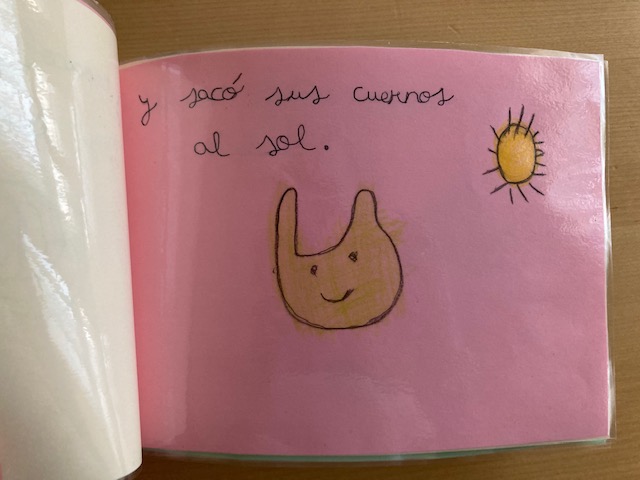 y sacó sus cuernos
al sol.